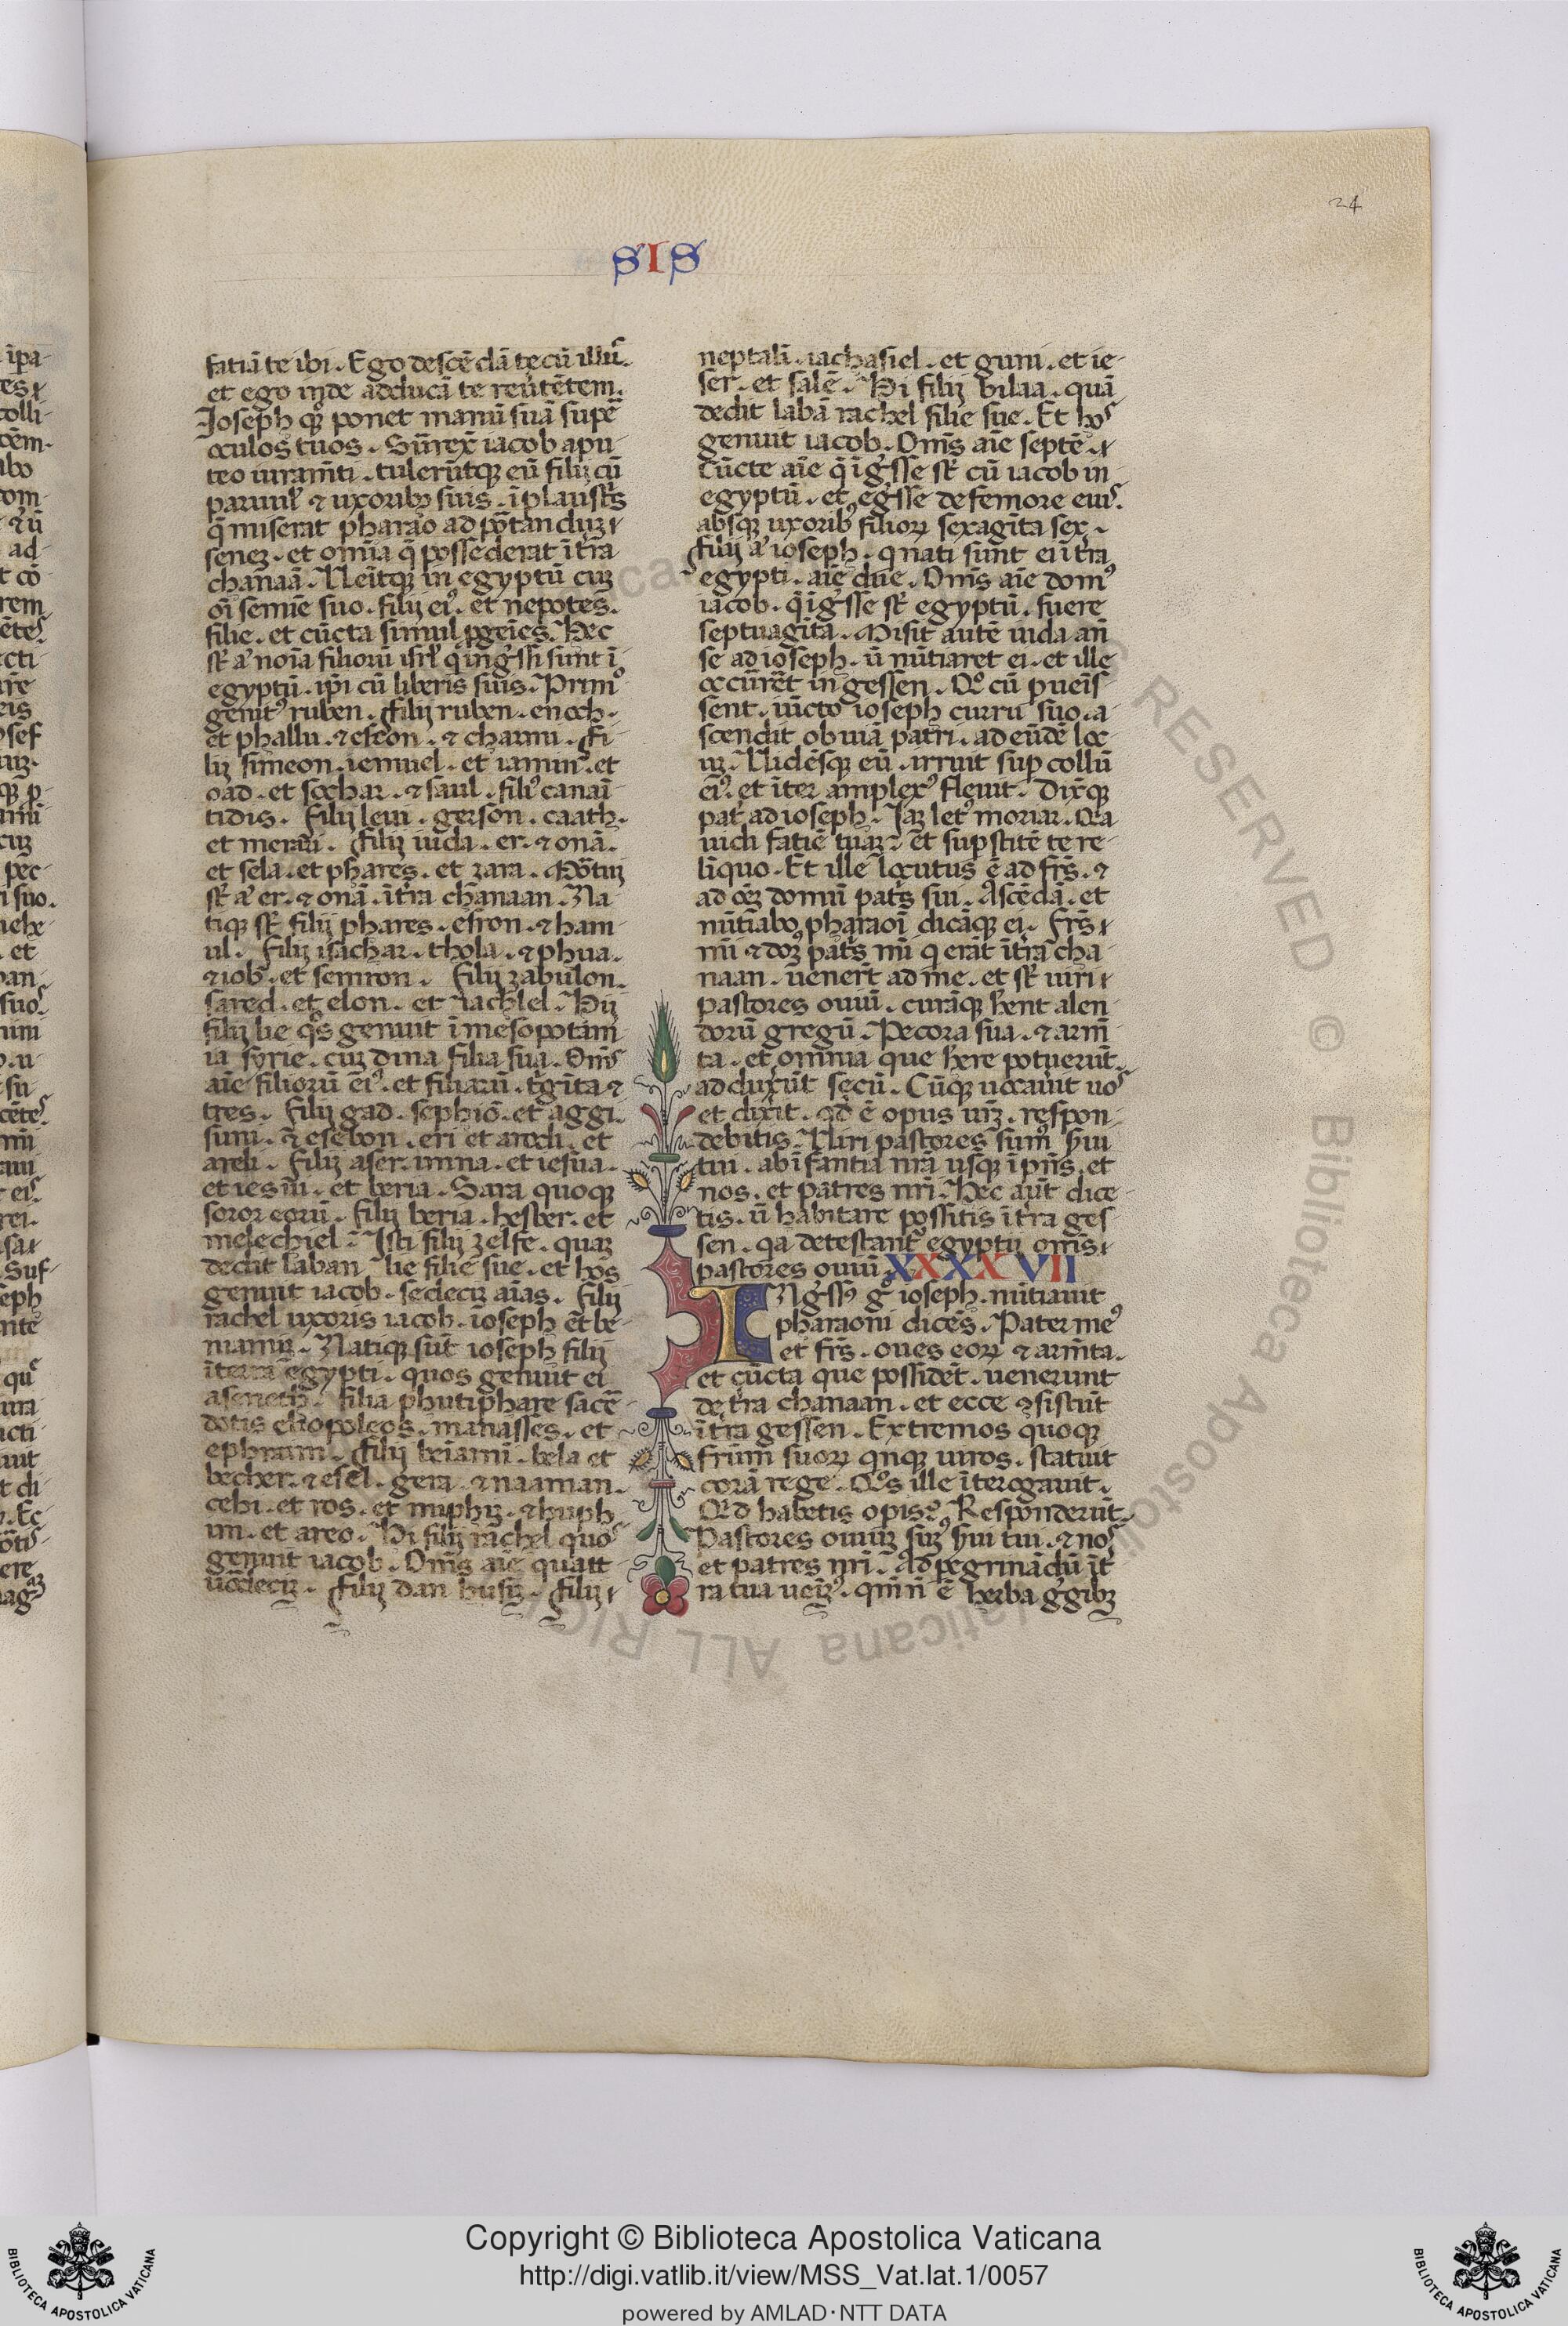 24
SIS
fatiā te ibi. Ego descēdā tecū illuc̄
et ego inde adducā te reu̓tētem.
Ioseph qꝫ ponet manū suā supe̅
oculos tuos. Surrex̄ iacob a pu-
teo iuram̄ti. tulerūtqꝫ eū filij cū
paruul̓ ⁊ uxoribꝫ suis. ī plaustr̄s
q̄ miserat pharao ad pōtandū
senē. et om̄ia q̄ possederat ī tr̄a
chanaā. Ueītqꝫ in egyptū cū
oī semie suo. filij ei̓. et nepotes.
filie. et cūcta simul ꝓgeīes. Hec
sr̄ a̓ noīa filiorū isrl̓ q̄ ing̓ssi sunt ī
egyptū. ip̄i cū liberis suis. Primo
genit̓ ruben. filij ruben. enoch.
et phallu. ⁊ esron. ⁊ charmi. Fi-
lij simeon. iemuel. et iamin. et
oad. et sochar. ⁊ saul. fili̓ canaī
tidis. Filij leui. gerson. caath.
et merari. filij iuda. er. ⁊ onā.
et sela. et phares. et zara. Mōtui
sr̄ a̓ er. ⁊ onā. ī tr̄a chanaan. Na-
tiqꝫ sr̄ filij phares. esron. ⁊ ham
ul. Filij isachar. thola. ⁊ phua.
⁊ iob. et semron. Filij zabulon.
sared. et elon. et iachlel. Hij
filij lie q̓s genuit ī mesopotam
ia syrie. cū dina filia sua. Om̄s
aīe filiorū ei̓. et filiarū. t̓gīta ⁊
tres. Filij gad. sephiō. et aggi.
suni. ⁊ esebon. eri et arodi. et
areli. Filij aser. imna. et iesua.
et iesui. et beria. Sara quoqꝫ
soror eorū. filij beria. heber. et
melechiel. Isti filij zelfe. quā
dedit laban lie filie sue. et hos
genuit iacob. sedecī aīas. Filij
rachel uxoris iacob. ioseph et be-
niamin. Natiqꝫ sūt ioseph filij
ī terra egypti. quos genuit ei
aseneth. filia phutiphare sace̅
dotis eliopoleos. manasses. et
ephraim. Filij beiamī. bela et
becher. ⁊ esel. gera. ⁊ naaman.
cehi. et ros. et miphī. ⁊ huph
im. et areo. Hi filij rachel quos
genuit iacob. Om̄s aīe quatt
uordecī. Filij dan husim. Filij
neptali. iachasiel. et guni. et ie-
ser. et salē. Hi filij bilaa. quā
dedit labā rachel filie sue. Et hos
genuit iacob. Om̄s aīe septē.
Cūcte aīe q̄ īg̓sse sr̄ cū iacob in
egyptū. et eg̓sse de femore eius.
absqꝫ uxoribꝫ filioꝝ sexagīta sex.
filij a̓ ioseph. q nati sunt ei ī tr̄a
egypti. aīe due. Om̄s aīe dom̓
iacob. q̄ īg̓sse sr̄ egyptū. fuere
septuagīta. Misit autē iuda an̄
se ad ioseph. ū nūtiaret ei. et ille
occūrēt in gessen. Qo̓ cū pueīs
sent. iūcto ioseph curru suo. a
scendit obuiā patri. ad eūdē loc
ū. Uidēsqꝫ eū. irruit suꝑ collū
ei̓. et iter amplex̓ fleuit. Dix̄qꝫ
pat̓ ad ioseph. Iā let̓ moriar. Qa
uidi fatiē tuā. et supstitē te re-
linquo. Et ille locutus ē ad fr̄s. ⁊
ad oēꝫ domū pat̓s sui. Ascēdā. et
nūtiabo pharaoī dicāqꝫ ei. Fr̄s
mi ⁊ dom̓ pat̓s mi q erāt ī tr̄a cha
naan. uenert̄ ad me. et sr̄ uiri
pastores ouiū. curāqꝫ hēnt alen
dorū gregū. Pecora sua. ⁊ arm̄
ta. et omnia que hēre potuerūt.
adduxūt secū. Cūqꝫ uocauit uos
et dixit. qd̄ ē opus ur̄ꝫ. respon-
debitis. Uiri pastores sum̓ s̓ui
tui. ab īfantia nr̄a usqꝫ ī pn̄s. et
nos. et patres nr̄i. Hec aut̄ dice
tis. ū habitare possitis ī tr̄a ges
sen. qa detestant̓ egyptij om̄s
pastores ouiū XXXXVII
INg̓ss̓ g̊ ioseph. nūtiauit
pharaoni dicēs. Pater me̓
et fr̄s. oues eoꝝ ⁊ arm̄ta.
et cūcta que possidēt. uenerunt
de tr̄a chanaan. et ecce ꝯsistūt
ī tr̄a gessen. Extremos quoqꝫ
frūm suoꝝ qnqꝫ uiros. statuit
corā rege. Qo̓s ille īterogauit.
Qid habetis opis? Responderūt.
Pastores ouiū sum̓ s̓ui tui. ⁊ nos
et patres nr̄i. Ad pegrinādū ī t̄
ra tua ueīm̓. qm̄ n̄ ē herba g̓gibꝫ
Copyright © Biblioteca Apostolica Vaticana
http://digi.vatlib.it/view/MSS_Vat.lat.1/0057
powered by AMLAD·NTT DATA